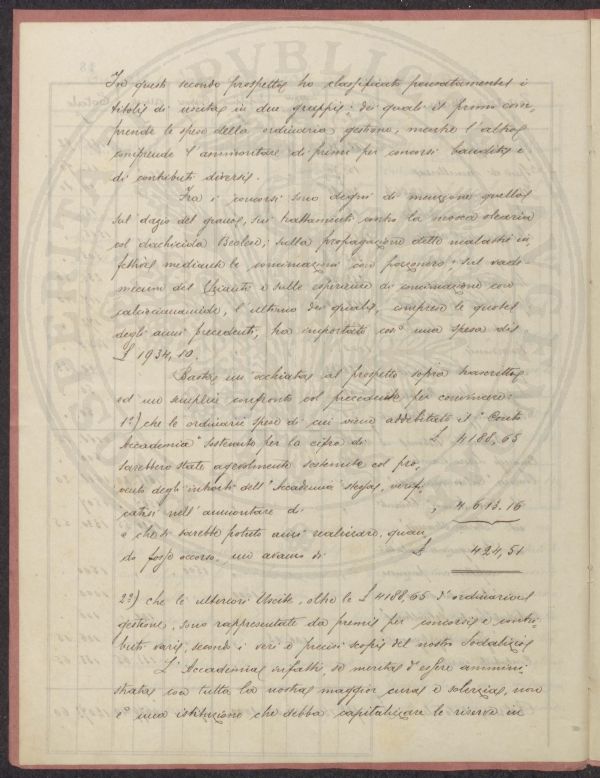 In questo secondo prospetto ho classificato pensatamente i
titoli di uscita in due gruppi; dei quali il primo com,
prende le spese della ordinaria gestione, mentre l'altro
comprende l'ammontare di premi per concorsi banditi e
di contributi diversi.
Fra i concorsi sono degni di menzione quello
sul dazio del grano, sui trattamenti contro la mosca olearia
col dachicida Berlese; sulla propagazione delle malattie in,
fettive mediante le concimazioni con pozzonero; sul vade-
mecum del Chianti e sulle esperienze di concimazione con
calciocianamide, l'ultimo dei quali, comprese le quote
degli anni precedenti, ha importato così una spesa di
£ 1934,10.
Basta un'occhiata al prospetto sopra trascritto
ed un semplice confronto col precedente per convincere:
1º) che le ordinarie spese di cui viene addebitato il "Conto
Accademia" sostenuto per la cifra di £ 4188,65
sarebbero state agevolmente sostenute col pro,
vento degli introiti dell'Accademia stessa, verifi,
catisi nell'ammontare di " 4.613.16
e che si sarebbe potuto anzi realizzare, quan,
do fosse occorso, un avanzo di £ 424,51
2º) che le ulteriori Uscite, oltre le £ 4188,65 d'ordinaria
gestione, sono rappresentate da premi per concorsi e contri,
buti varii, secondo i veri e precisi scopi del nostro Sodalizio
L'Accademia infatti, se merita d'essere ammini,
strata con tutta la nostra maggior cura e solerzia, non
è una istituzione che debba capitalizzare le riserve in